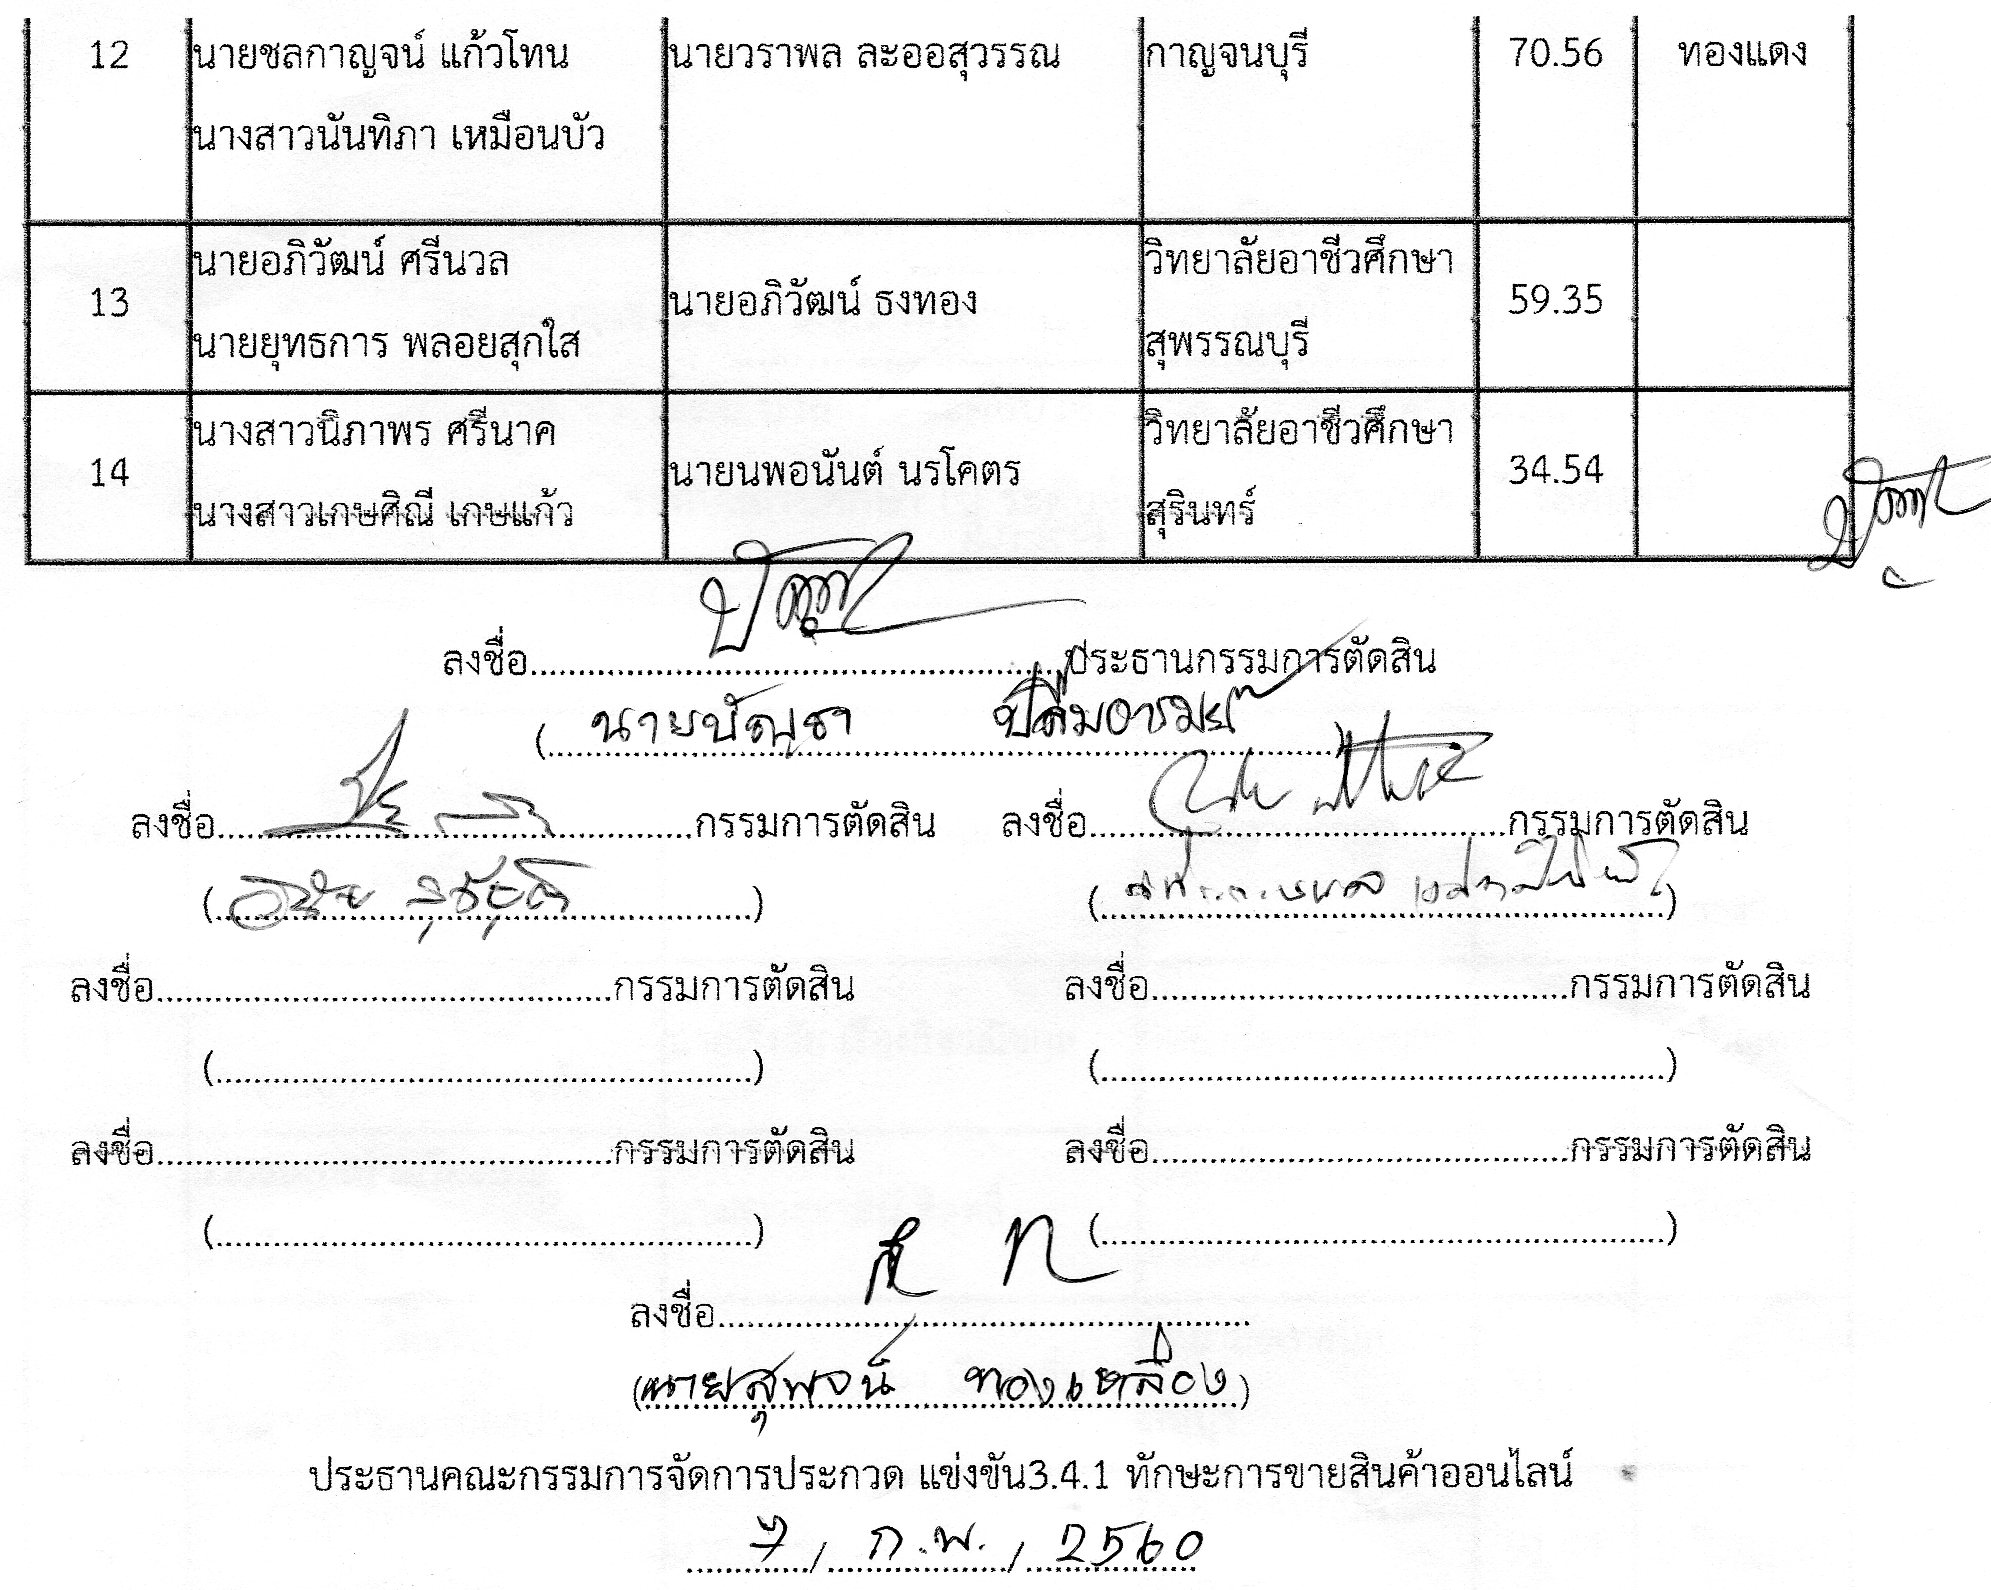 12 นายชลกาญจน์ แก้วโทน นายวราพล ละออสุวรรณ กาญจนบุรี 70.56 ทองแดง
นางสาวนันทิภา เหมือนบัว
นายอภิวัฒน์ ศรีนวล วิทยาลัยอาชีวศึกษา
13 นายอภิวัฒน์ ธงทอง 59.35
นายยุทธการ พลอยสุกใส สุพรรณบุรี
นางสาวนิภาพร ศรีนาค วิทยาลัยอาชีวศึกษา
14 นายนพอนันต์ นรโคตร 34.54
นางสาวเกษศิณี เกษแก้ว สุรินทร์
ลงชื่อ........................................ประธานกรรมการตัดสิน
(นายบัญชา ปลื้มอารมย์)
ลงชื่อ........................................กรรมการตัดสิน ลงชื่อ........................................กรรมการตัดสิน
(........................................) (........................................)
ลงชื่อ........................................กรรมการตัดสิน ลงชื่อ........................................กรรมการตัดสิน
(........................................) (........................................)
ลงชื่อ........................................กรรมการตัดสิน ลงชื่อ........................................กรรมการตัดสิน
(........................................) (........................................)
ลงชื่อ........................................
(นายสุพจน์ ทองเหลือง)
ประธานคณะกรรมการจัดการประกวด แข่งขัน3.4.1 ทักษะการขายสินค้าออนไลน์
7 / ก.พ. / 2560